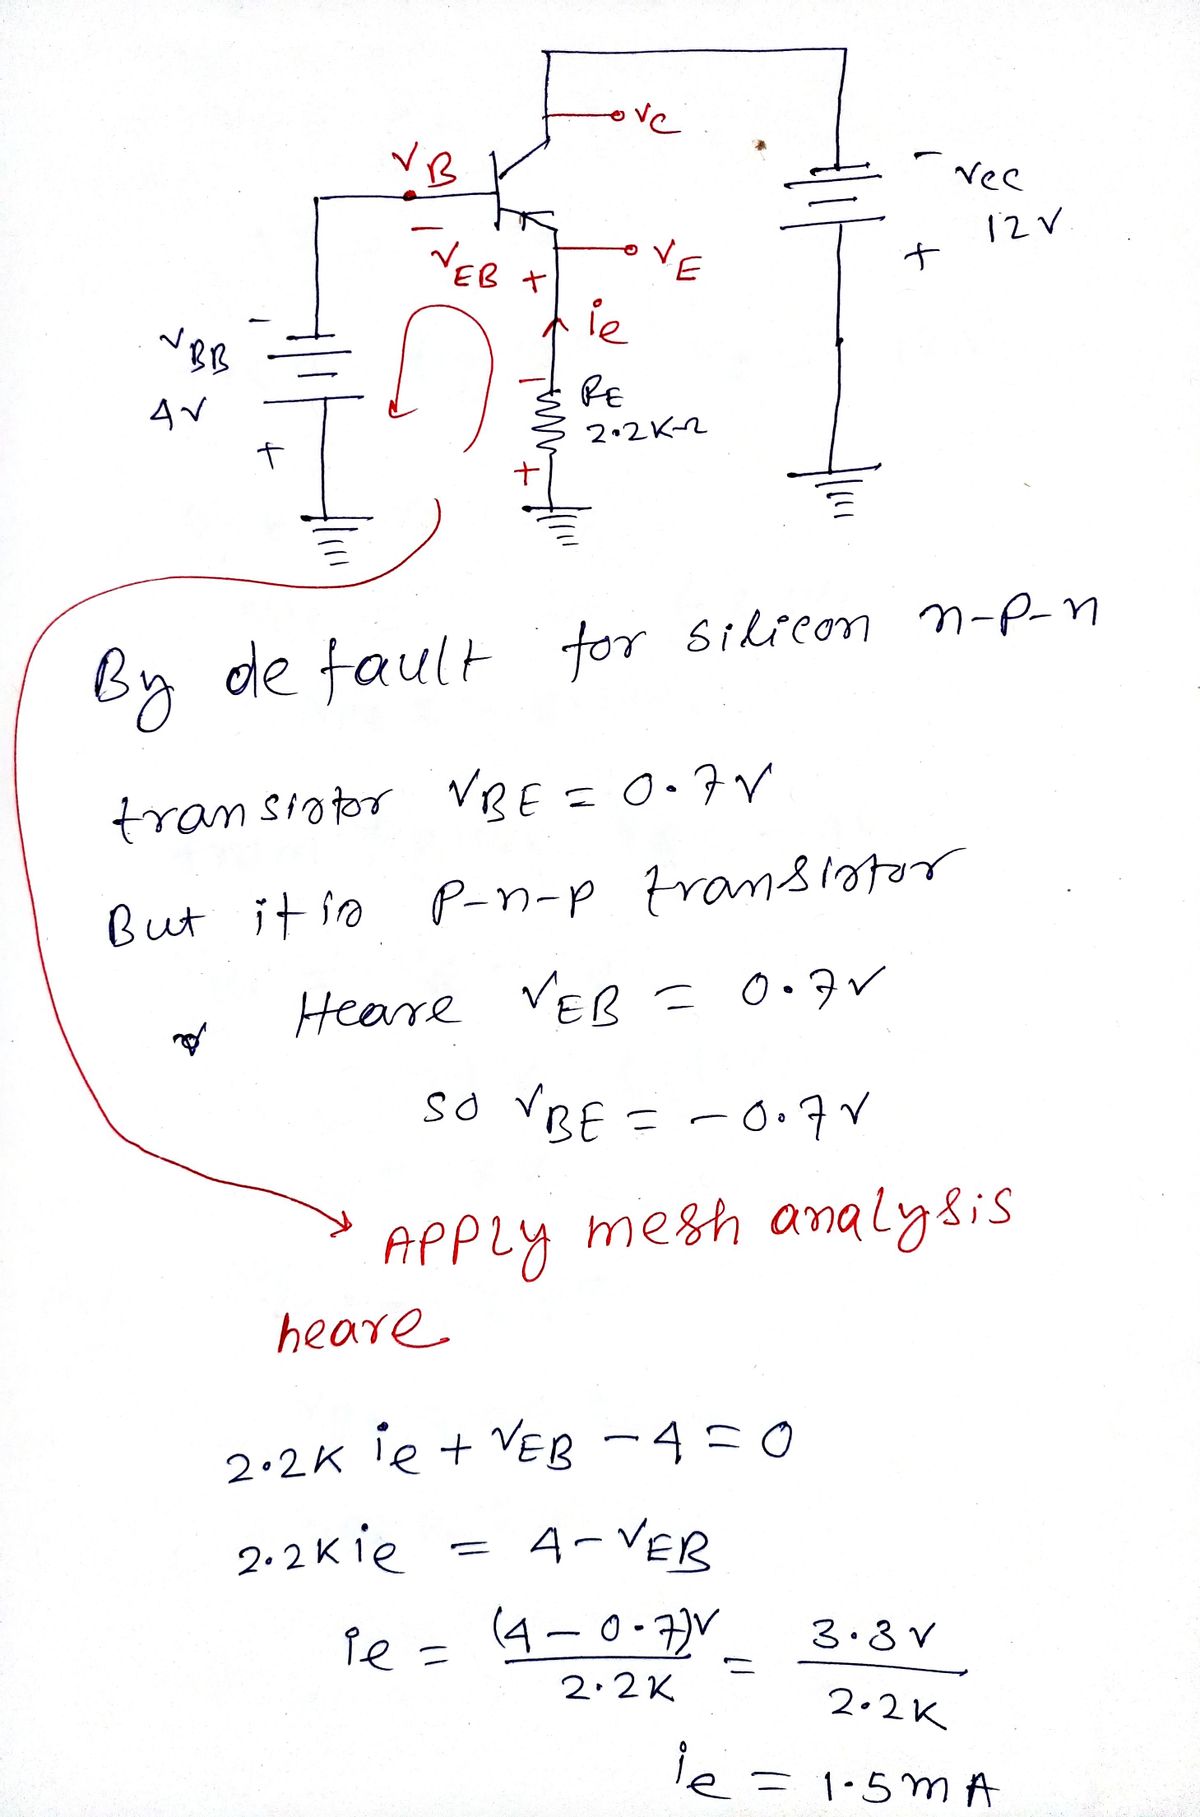 VC
VB
- VCC
12V
+
-
VEB +
VE
ie
-
VBB
4V
+
-
RE
2.2K-Ω
+
By default for silicon n-p-n
transistor VBE = 0.7V
But it is p-n-p transistor
Heare VEB = 0.7V
so VBE = -0.7V
APPLY mesh analysis
heare
2.2K ie + VEB - 4 = 0
2.2K ie = 4 - VEB
ie = (4 - 0.7)V / 2.2K = 3.3V / 2.2K
ie = 1.5mA